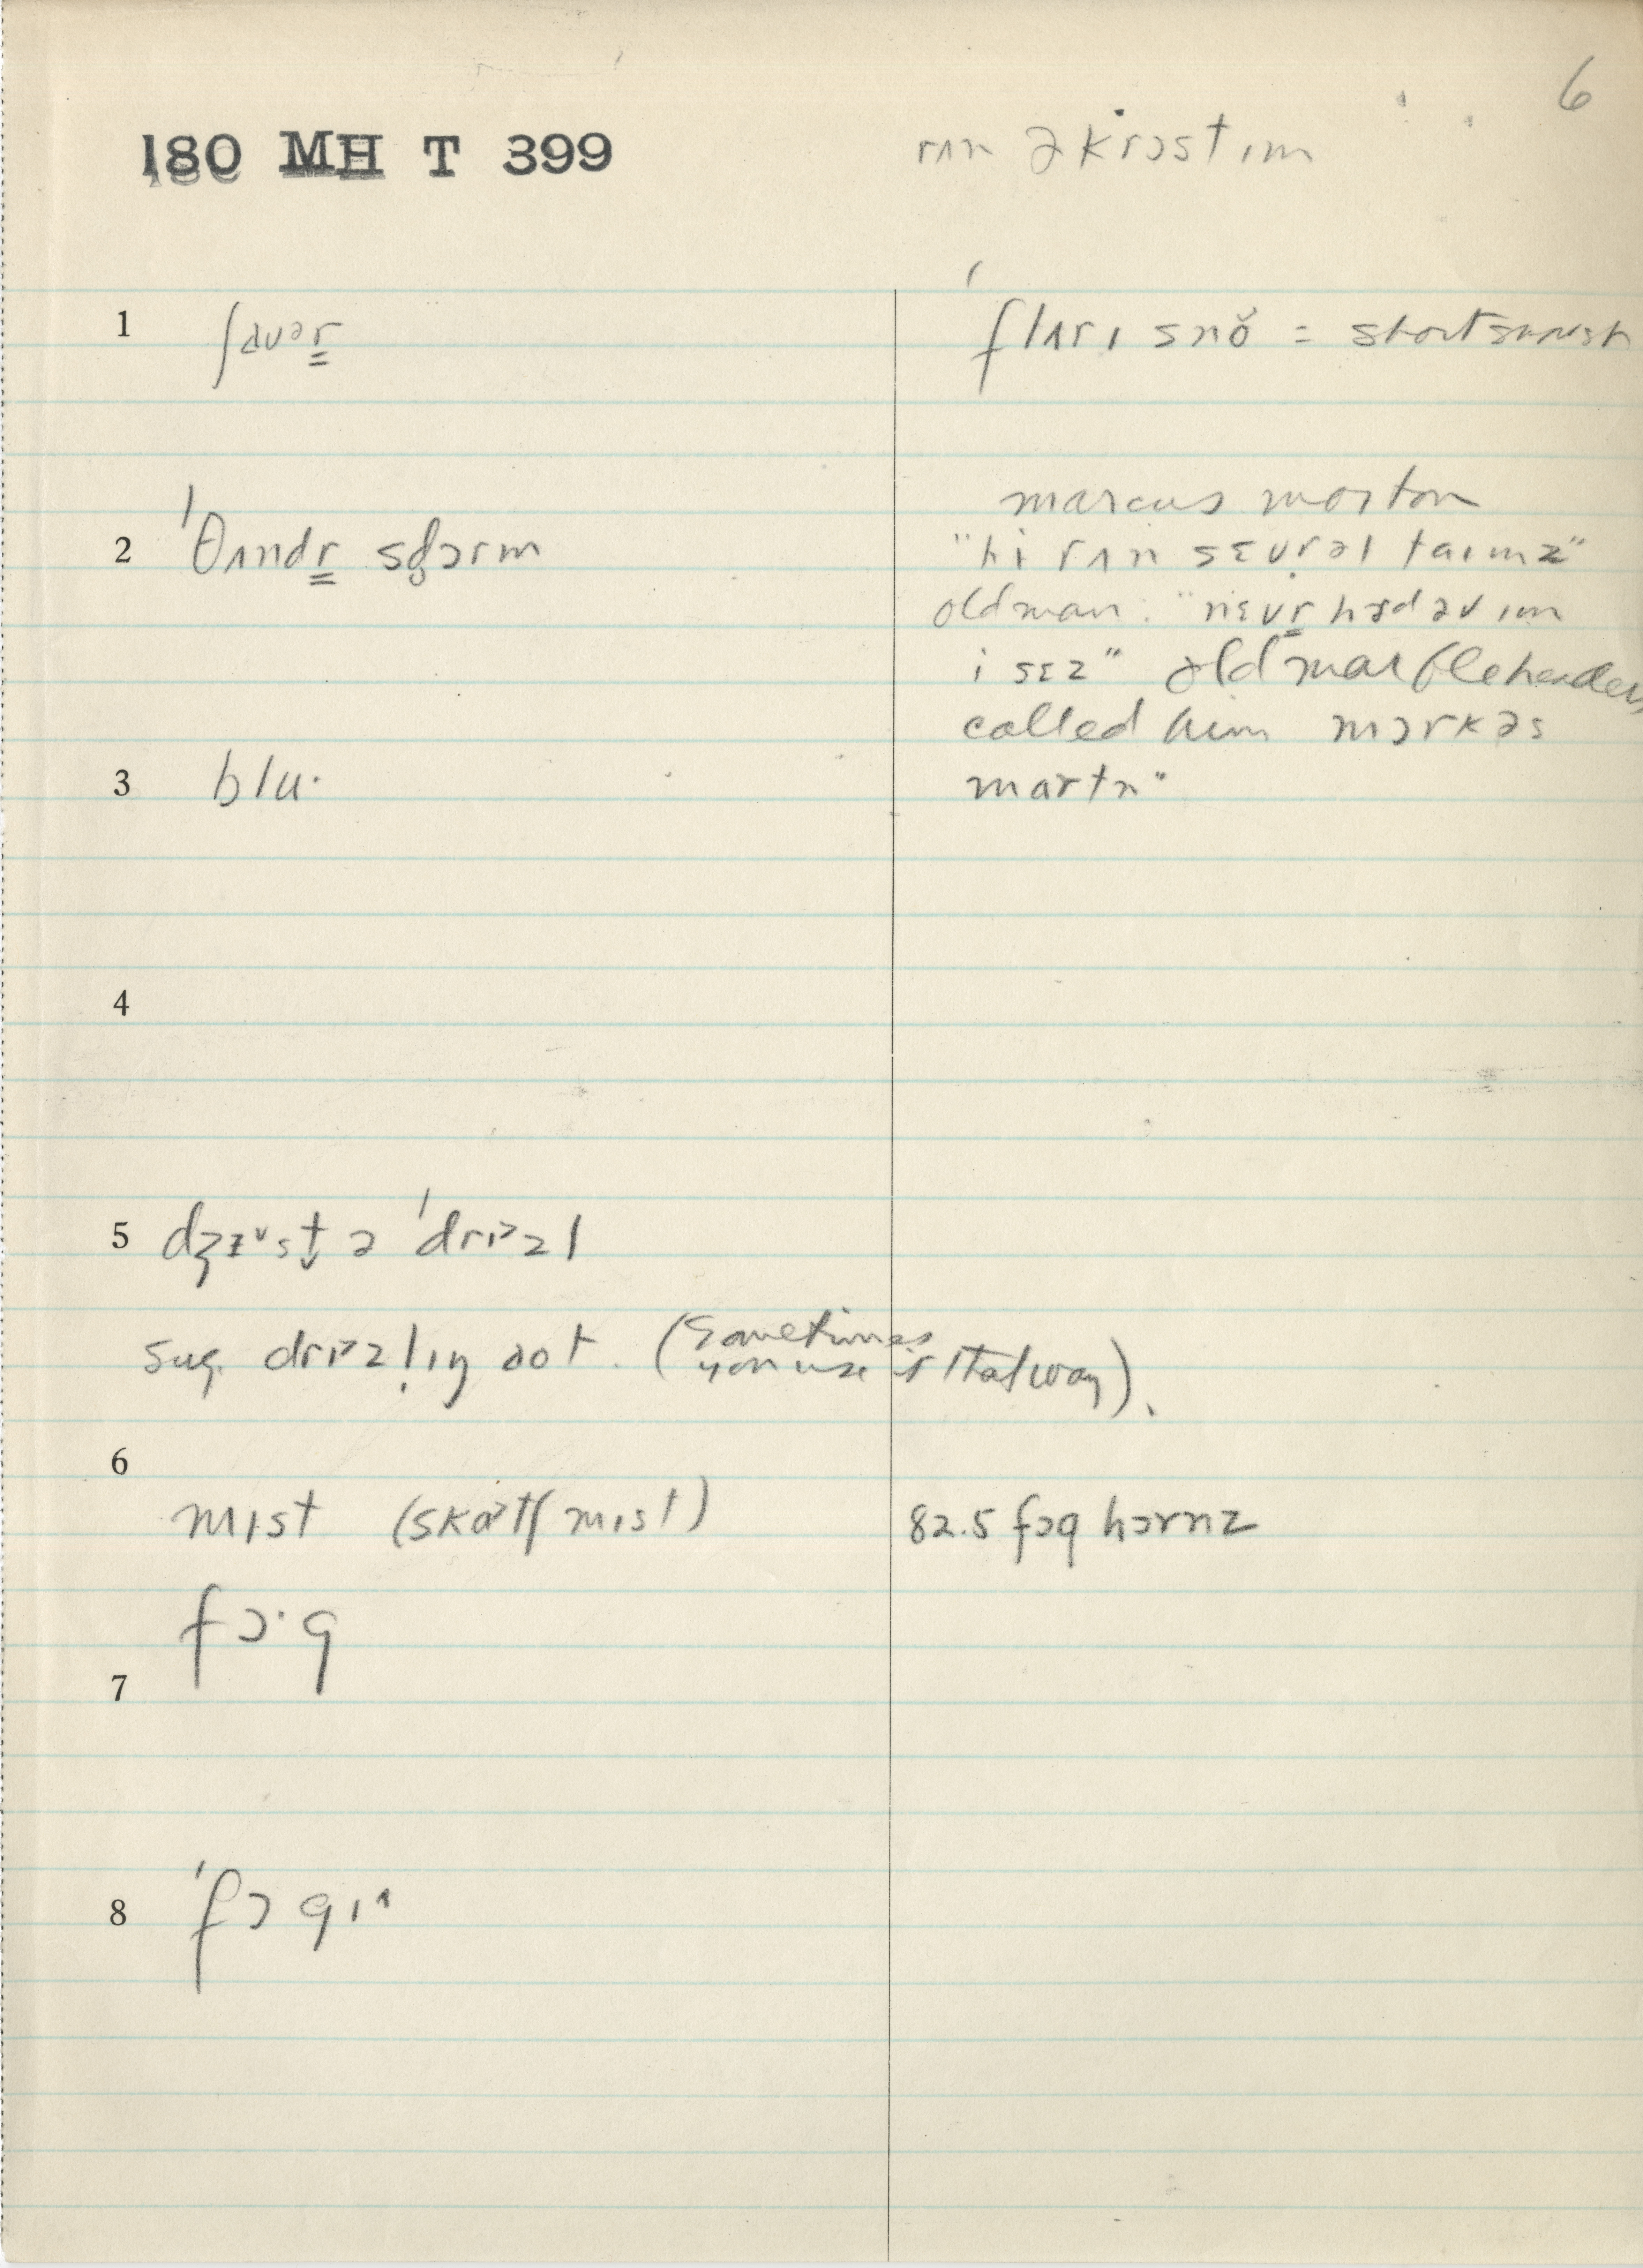 6
180 MH T 399
rʌn əkrɔst ɪm
1 ʃaʊər̳
ˈflʌrɪ snŏ = short
2 ˈθʌndr̳ st̬ɔrm
marcus morton
"hi rʌn sɛvr̩əl taɪmz"
old man: "nɛvr̳ hɜd əv ɪm
i sɛz" old marbleheaders
called him mɔrkəs
martn"
3 blu·
4
5 dʒɪ˅st̬ ə ˈdrɪ˃zl
sug. drɪ˃zl̩ɪŋ aot. (Sometimes
you use it that way).
6
mɪst (skɑ˃tʃ mɪst)
82.5 fɔg hɔrnz
fɔ·g
7
8 ˈfɔgɪ˄